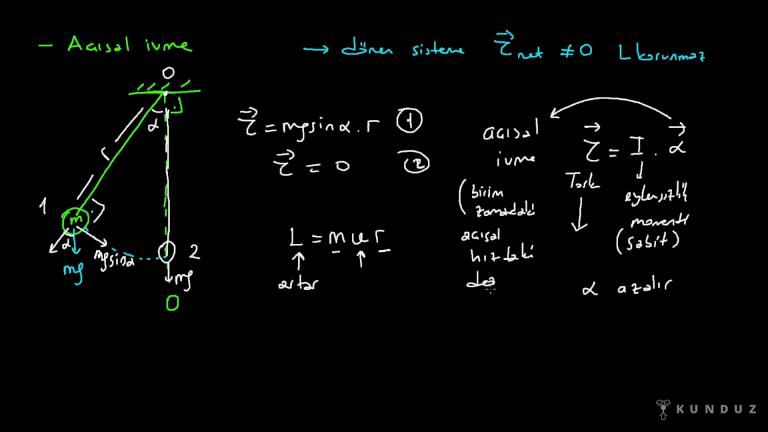 - Açısal ivme
→ dönen sisteme τ⃗net ≠0 L korunmaz
O
α
r
1
m
α
mg
mgsinα
2
mg
O
τ⃗ = mgsinα.r ①
τ⃗ = 0 ②
L = m υ r
artar
açısal
ivme
(birim
zamandaki
açısal
hızdaki
değ
τ⃗ = I . α⃗
Tork
eylemsizlik
momenti
(sabit)
α azalır
KUNDUZ